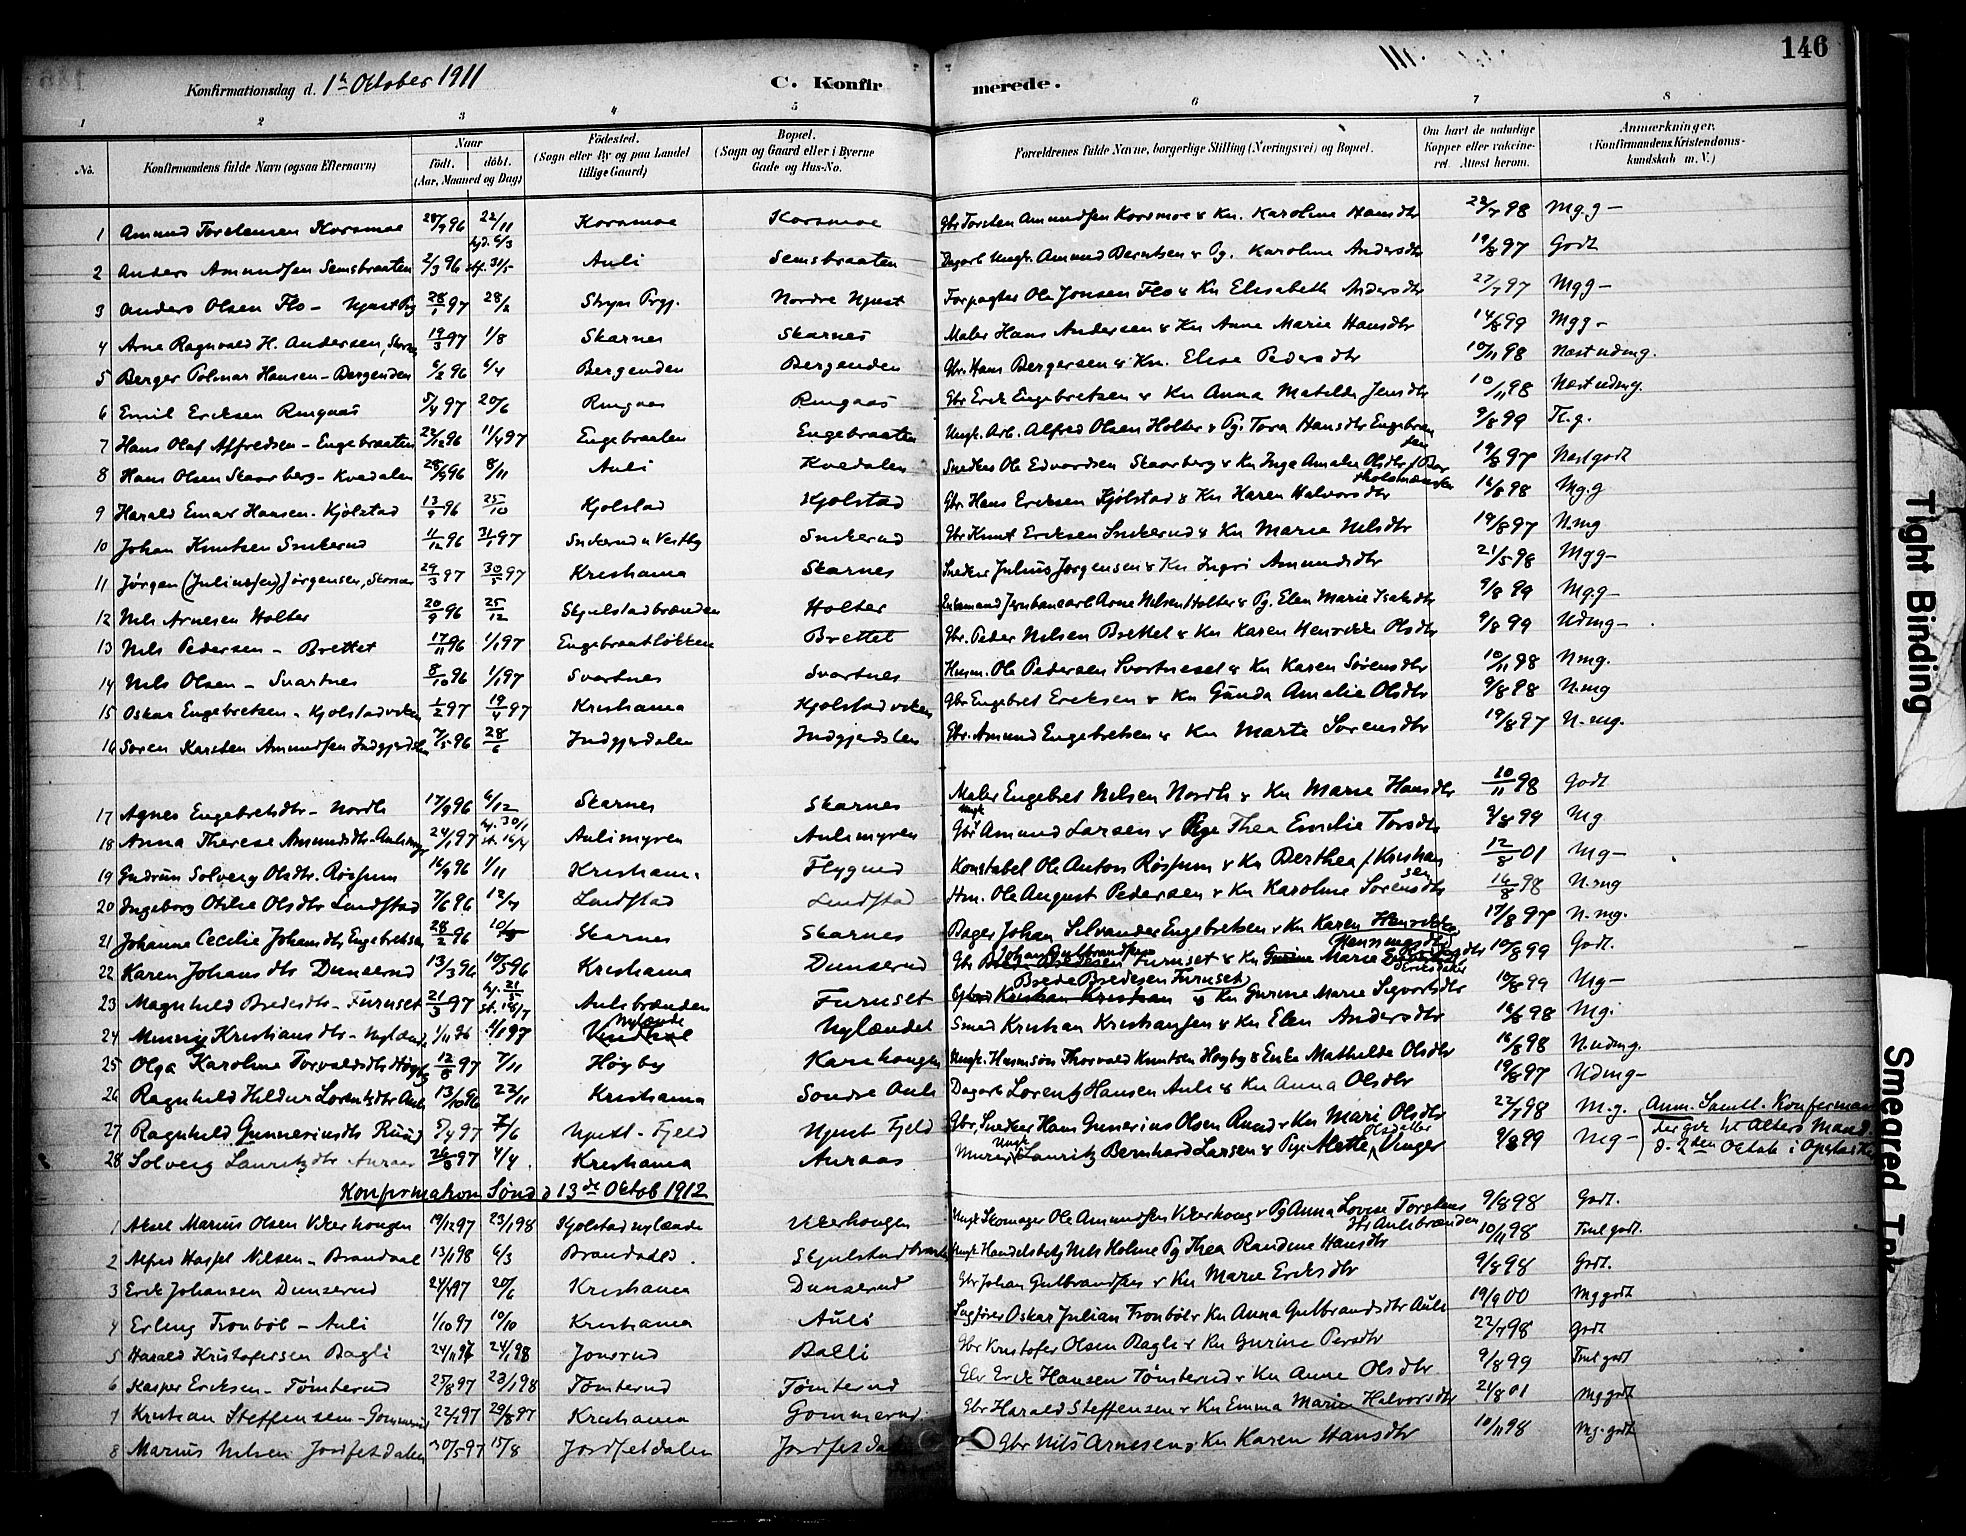 146
Konfirmationsdag d. 1ste October 1911 C. Konfirmerede.
1 2 3 4 5 6 7 8
No. Konfirmandens fulde Navn (ogsaa Efternavn) Naar født. døbt. (Aar, Maaned og Dag) Fødested. (Sogn eller By og paa Landet tillige Gaard) Bopæl. (Sogn og Gaard eller i Byerne Gade og Hus-No. Forældrenes fulde Navne, borgerlige Stilling (Næringsvei) og Bopæl. Om havt de naturlige Kopper eller vakcineret. Attest herom. Anmærkninger. (Konfirmandens Kristendomskundskab m. V.)
1 Amund Torstensen Korsmoe 28/9 96 22/11 Korsmoe Korsmoe Gbr Torsten Amundsen Korsmoe & Kn. Karoline Hansdtr 23/7 98 Mg.g -
2 Anders Amundsen Semsbraaten 2/3 96 hjd. 6/3 31/5 Auli Semsbraaten Dagarb. Ungk. Amund Berntsen & Pg. Karoline Andersdtr 19/8 97 Godt
3 Anders Olsen Flo - Njust 28/1 97 28/2 Stryn Prgj. Nordre Njust Forpagter Ole Jonsen Flo & Kn Elisabeth Andersdtr 27/7 97 Mgg -
4 Arne Ragnvald H. Andersen, Skarnes 19/3 97 1/8 Skarnes Skarnes Maler Hans Andersen & Kn Anne Marie Hansdtr 14/8 99 Mgg -
5 Berger Polmar Hansen - Bergenden 6/2 96 6/4 Bergenden Bergenden Gbr. Hans Bergersen & Kn. Elise Pedersdtr 10/11 98 Næst udmg.
6 Emil Eriksen Rungaas 5/4 97 20/6 Rungaas Rungaas Gbr Erik Engebretsen & Kn Anna Matilde Jensdtr 10/11 98 Næst udmg.
7 Hans Olaf Alfredsen - Engebraaten 22/12 96 11/4 97 Engebraaten Engebraaten Ungk. Arb. Alfred Olsen Holter & Pg. Tora Hansdtr Engebraaten 9/8 99 Tl.g.
8 Hans Olsen Skaarberg - Kvedalen 28/9 96 8/11 Auli Kvedalen Snedker Ole Edvardsen Skaarberg & Kn Inga Amalia Olsdtr 19/8 97 Næst godt
9 Harald Einar Hansen - Kjølstad 13/9 96 25/10 Kjolstad Kjolstad Gbr Hans Eriksen Kjølstad & Kn Karen Halvorsdtr 16/8 98 Mg.g
10 Johan Knutsen Snikerud 11/12 96 31/1 97 Snikerud u Vestby Snikerud Gbr Knut Eriksen Snikerud & Kn Marie Nilsdtr 19/8 97 N.mg
11 Jørgen (Juliussen) Jørgensen, Skarnes 29/3 97 30/5 97 Kristiania Skarnes Snedker Julius Jørgensen & Kn Ingri Amundsdtr 21/5 98 Mgg -
12 Nils Arnesen Holter 20/9 96 25/12 Skjulstadbrænden Holter Enkemand Jernbanearb Arne Nilsen Holter & Pg. Elen Marie Isaksdtr 9/8 99 Mg.g -
13 Nils Pedersen - Brettet 17/11 96 1/1 97 Engebraatløkken Brettet Gbr. Peder Nilsen Brettet & Kn Karen Henrikke Olsdtr 9/8 99 Udmg -
14 Nils Olsen - Svartnes 8/10 96 1/1 97 Svartnes Svartnes Husm. Ole Pedersen Svartneset & Kn Karen Sørensdtr 10/11 98 Nmg.
15 Oskar Engebretsen - Kjolstadviken 1/2 97 19/4 97 Kristiania Kjolstadviken Gbr Engebret Eriksen & Kn Gunda Amalie Olsdtr 9/8 98 N.mg
16 Søren Karsten Amundsen Indgjerdalen 7/5 96 28/6 Indgjerdalen Indgjerdalen Gbr. Amund Engebretsen & Kn Marte Sørensdtr 19/8 97 N.mg.
17 Agnes Engebretsdtr - Nordli 17/9 96 6/12 Skarnes Skarnes Maler Engebret Nilsen Nordli & Kn Marie Hansdtr 10/11 98 Godt
18 Anna Therese Amundsdtr - Aulimyr 24/1 97 hj. 30/1 st. 16/4 Aulimyren Aulimyren Ungk Gbr Amund Larsen & Pige Thea Emilie Torsdtr 9/8 99 Mg
19 Gudrun Solveig Olsdtr. Røssum 16/9 96 1/11 Kristiania Flygind Konstabel Ole Anton Røssum & Kn Berthea f. Kristiansen 12/8 01 Mg -
20 Ingeborg Otilie Olsdtr Lundstad 7/6 96 12/7 Lundstad Lundstad Hm. Ole August Pedersen & Kn Karoline Sørensdtr 16/8 98 N.mg
21 Johanne Cecilie Johansdtr Engebretsen 28/2 96 10/5 Skarnes Skarnes Bager Johan Silvander Engebretsen & Kn Karen Henrikka Henningsdtr 17/8 97 N.mg.
22 Karen Johansdtr Dunserud 13/3 96 10/5 96 Kristiania Dunserud Gbr Johan Gulbrandsen & Kn Marie Eriksdatter 10/8 99 Godt.
23 Magnhild Bredesdtr - Furuset 21/3 97 hj. 21/5 st. 18/7 Aulibrænden Furuset Brede Bredesen Furuset & Kn Gurine Marie Sigvartsdtr 10/8 99 Mg -
24 Minny Kristiansdtr - Nyland 1/11 96 1/1 97 Nylænde Nylændet Smed Kristian Kristiansen & Kn Elen Andersdtr 16/8 98 Mg.
25 Olga Karoline Torvaldsdtr Høgby 12/8 97 7/11 Høgby Karihaugen Ungk. Husmsøn Thorvald Knutsen Høgby & Enke Mathilde Olsdtr 16/8 98 N.udmg.
26 Ragnhild Hildur Lorentsdtr Auli 13/10 96 22/11 Kristiania Søndre Auli Dagarb Lorents Hansen Auli & Kn Anna Olsdtr 19/8 97 Udmg -
27 Ragnhild Gunneriusdtr Ruud 5/4 97 7/6 Njust - Fjeld Njust Fjeld Gbr, Snedker Hans Gunerius Olsen Ruud & Kn Mari Olsdtr 22/7 98 M.g.
28 Solveig Lauritzdtr Auraas 26/3 97 4/4 Kristiania Auraas Murer Ungk Lauritz Bernhard Larsen & Pige Alette Olsdatter Unger 9/8 99 Mg -
Anm. Samtl. Konfirmander gik til Alters Mand. d. 2den Octob i
Konfirmation Sønd d 13de Octob 1912
1 Aksel Marius Olsen Vikerhougen 19/12 97 23/1 98 Kjolstadnylænde Vikerhougen Ungk Skomager Ole Amundsen Vikerhoug & Pg Anna Lovise Torstensdtr Aulibrænden 9/8 98 Godt.
2 Alfred Nilsen - Brandval 13/1 98 6/3 Brandval. Skjulstadbrænden Ungk Handelsbetj Nils Holme Pg Thea Randine Hansdtr 10/11 98 Tml godt.
3 Erik Johansen Dunserud 24/4 97 20/6 Kristiania Dunserud Gbr Johan Gulbrandsen & Kn Marie Eriksdtr 9/8 98 Godt.
4 Erling Tronbøl - Auli 1/10 97 10/10 Kristiania Auli Sagfører Oskar Julian Tronbøl & Kn Anna Gulbrandsdtr Auli 19/9 00 Mg godt
5 Harald Kristofersen Bagli 24/11 97 24/1 98 Jonsrud Balli Gbr Kristofer Olsen Bagli & Kn Gurine Persdtr 22/7 98 Godt
6 Kasper Eriksen - Tømterud 25/8 97 23/1 98 Tømterud Tømterud Gbr Erik Hansen Tømterud & Kn Anne Olsdtr 9/8 99 Tml godt
7 Kristian Steffensen - Gommerud 22/2 97 29/8 97 Kristiania Gommerud Gbr Harald Steffensen & Kn Emma Marie Halvorsdtr 21/8 01 Mg godt
8 Marius Nilsen Jordfetdalen 30/5 97 15/8 Jordfetdalen Jordfetdalen Gbr Nils Arnesen & Kn Karen Hansdtr 10/11 98 Mg. godt
Tight Binding
Smeared